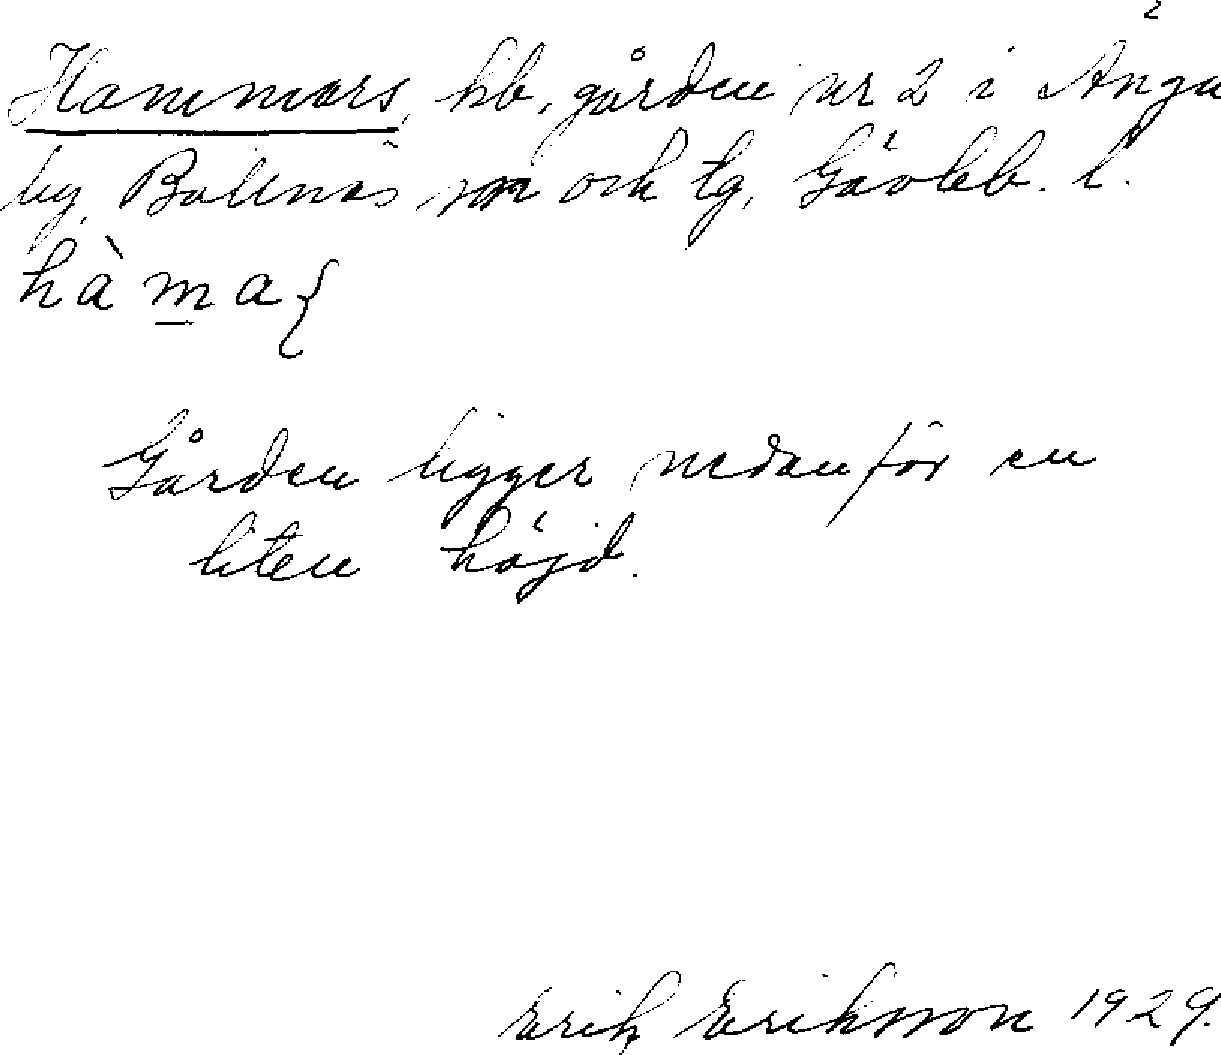 Hammars, hb, gården nr 2 i Änga
by, Bollnäs sn och tg, Gävleb. l.
hàm̲a
Gården ligger nedanför en
liten höjd.
Erik Eriksson 1929.